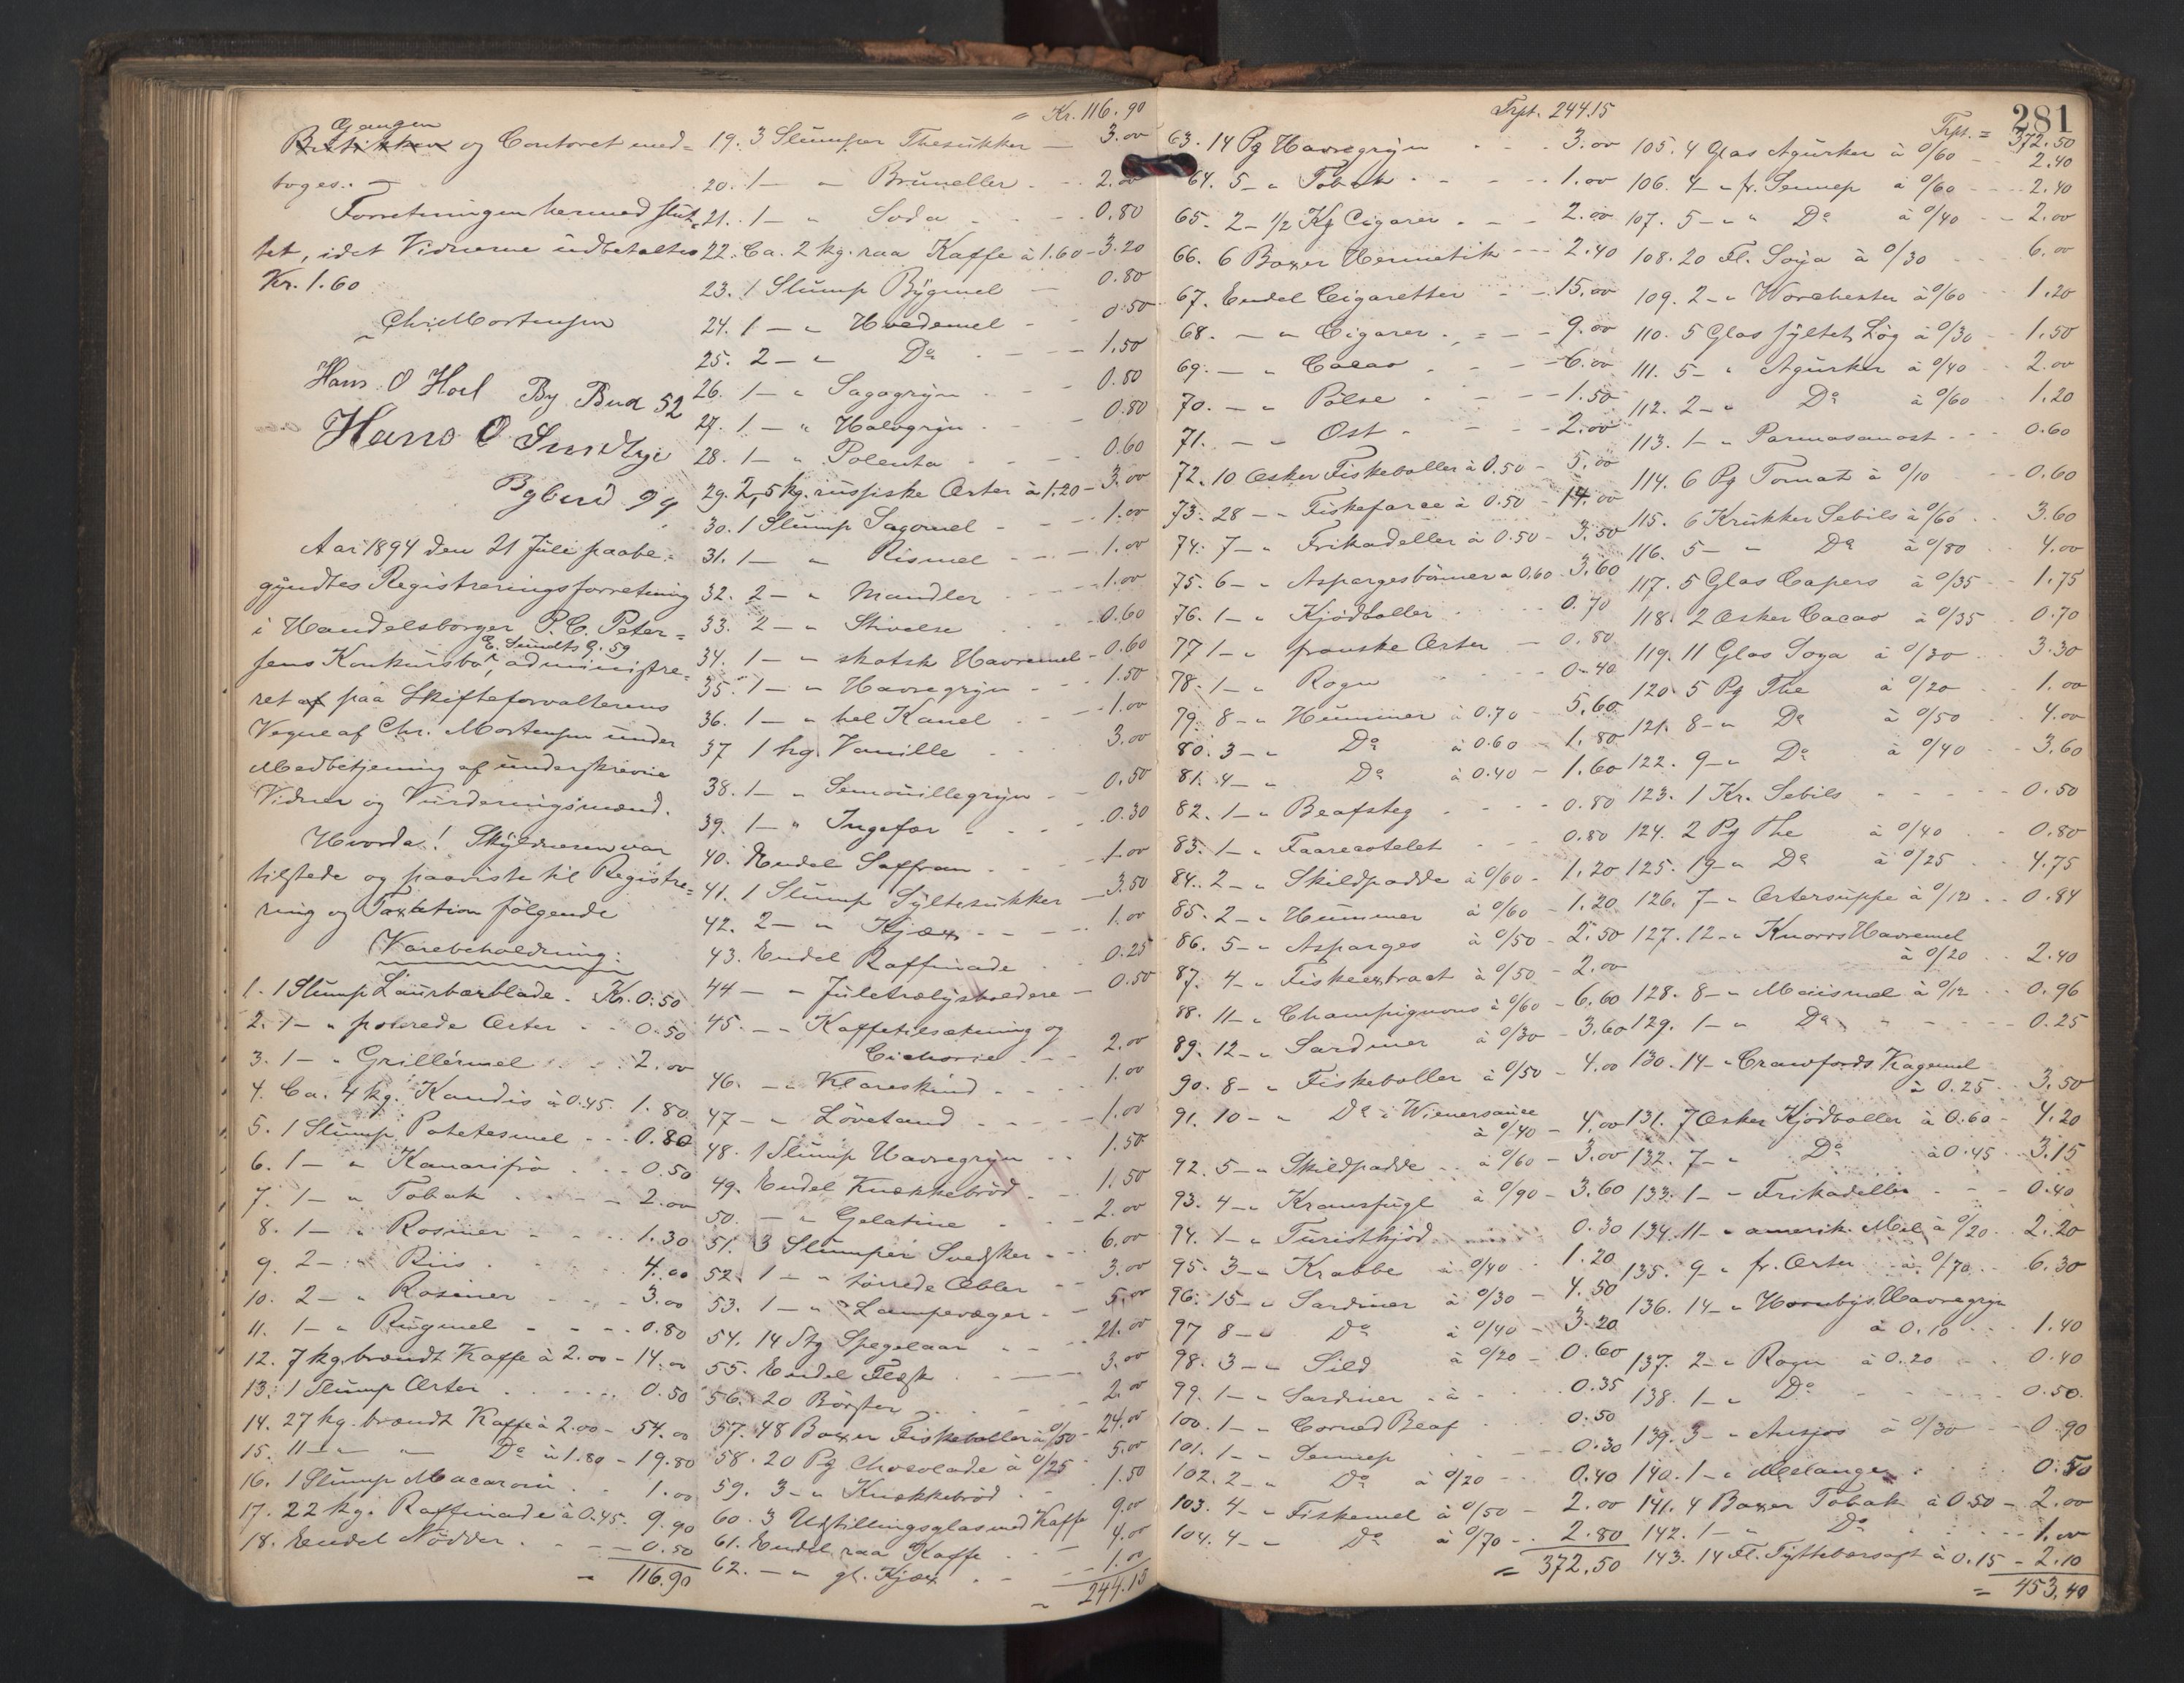 Gangen
Butikken og Contoret med=
toges. —
Forretningen hermed slut=
tet, idet Vidnerne udbetaltes
Kr. 1.60
Chr. Mortensen
Hans O Hoel By Bud 52
Hans O. Smedbye
Bybud 99
Aar 1894 den 21 Juli paabe=
gyndtes Registreringsforretning
i Handelsborger P. C. Peter=
E. Sundts G. 59
sens Konkursbo, administre=
ret af paa Skifteforvalterens
Vegne af Chr. Mortensen under
Medbetjening af underskrevne
Vidner og Vurderingsmænd.
Hvorda! Skyldneren var
tilstede og paaviste til Registre=
ring og Taxtation følgende
Varebeholdning:
1. 1 Slump Laurbærblade. Kr. 0.50
2. 1 — " polerede Erter - - 0.50
3. 1 — " Grillérmel - - 2.00
4. Ca. 4 kg. Kandis à 0.45. 1.80
5. 1 Slump Potetesmel - - 0.80
6. 1 — " Kanarifrø - - 0.50
7. 1 — " Tobak - - 2.00
8. 1 — " Rosiner - - 1.30
9. 2 — " Riis - - 4.00
10. 2 — " Rosiner - - 3.00
11. 1 — " Rugmel - - 0.80
12. 7 kg. brændt Kaffe à 2.00 - 14.00
13. 1 Slump Erter - - 0.50
14. 27 kg. brændt Kaffe à 2.00 - 54.00
15. 11 — " — Do à 1.80 - 19.80
16. 1 Slump Macaroni - - 1.00
17. 22 kg. Raffinade à 0.45. 9.90
18. Endel Nødder - - 0.50
= 116.90
= Kr. 116.90
19. 3 Slumper Thesukker — 3.00
20. 1 — " Bruneller - - 2.00
21. 1 — " Soda - - 0.80
22. Ca. 2 kg. raa Kaffe à 1.60 - 3.20
23. 1 Slump Bygmel — 0.80
24. 1 — " Hvedemel - - 0.50
25. 2 — " Do - - 1.50
26. 1 — " Sagogryn - - 0.80
27. 1 — " Halvgryn - - 0.80
28. 1 — " Polenta - - 0.60
29. 2,5 kg. russiske Erter à 1.20 - 3.00
30. 1 Slump Sagomel - - 1.00
31. 1 — " Rismel - - 1.00
32. 2 — " Mandler - - 1.00
33. 2 — " Stivelse - - 0.60
34. 1 — " skotsk Havremel - 0.60
35. 1 — " Havregryn - - 1.50
36. 1 — " hel Kanel - - 1.00
37 1 kg. Vanille - - 3.00
38. 1 — " Semouillegryn - - 0.50
39. 1 — " Ingefær - - 0.30
40. Endel Saffran - - 1.00
41. 1 Slump Syltesukker — 3.50
42. 2 — " Kjæx - - 1.00
43. Endel Raffinade - - 0.25
44 — " Juletrælysholdere — 0.50
45. — " Kaffetilsætning og
Cichorie - - 2.00
46. — " Klareskind - - 1.00
47 — " Løvetand - - 1.00
48. 1 Slump Havregryn - - 1.50
49. Endel Knækkebrød - - 1.50
50. — " Gelatine - - 2.00
51. 3 Slumper Svedsker - - 6.00
52. 1 — " tørrede Æbler - - 3.00
53. 1 — " Lampevæger - - 5.00
54. 14 Stg Spegelaar - - 21.00
55. Endel Flesk - - 3.00
56. 20 Børster - - 2.00
57. 48 Boxer Fiskeboller à 0/50 - 24.00
58. 20 Pg Chocolade à 0/25 5.00
59. 3 — " Knækkebrød - - 1.50
60. 3 Udstillingsglas med Kaffe 9.00
61. Endel raa Kaffe - - 4.00
62. — " gl. Kjæx - - 1.00
= 244.15
Trpt. 244.15
63. 14 Pg Havregryn - - 3.00
64. 5 - " Tobak - - 1.00
65. 2 - 1/2 Kg Cigarer - - 2.00
66. 6 Boxer Hermetik - - 2.40
67. Endel Cigaretter - - 15.00
68. — " Cigarer - - 9.00
69. — " Cacao - - 6.00
70. — " Pølse - - 1.50
71. — " Ost - - 2.00
72. 10 Æsker Fiskeboller à 0.50 - 5.00
73. 28 - " Fiskefarce à 0.50 - 14.00
74. 7 - " Frikadeller à 0.50 - 3.50
75. 6 - " Aspargesbønner a 0.60 - 3.60
76. 1 - " Kjødboller - - 0.70
77 1 - " franske Erter - 0.80
78. 1 - " Rogn - - 0.40
79. 8 - " Hummer à 0.70 - 5.60
80. 3 - " Do à 0.60 - 1.80
81. 4 - " Do à 0.40 - 1.60
82. 1 - " Beafsteg - - 0.80
83. 1 - " Faarecotelet - - 0.80
84. 2 - " Skildpadde à 0/60 - 1.20
85. 2 - " Hummer à 0/60 - 1.20
86. 5 - " Asparges à 0/50 - 2.50
87. 4 - " Fiskeextract à 0/50 - 2.00
88. 11 - " Champignons à 0/60 - 6.60
89. 12 - " Sardiner à 0/30 - 3.60
90. 8 - " Fiskeboller à 0/50 - 4.00
91. 10 - " Do i Wienersauce
à 0/40 - 4.00
92. 5 - " Skildpadde à 0/60 - 3.00
93. 4 - " Kramsfugl à 0/90 - 3.60
94. 1 - " Turistkjød - - 0.30
95. 3 - " Krabbe à 0/40 - - 1.20
96. 15 - " Sardiner à 0/30 - 4.50
97 8 - " Do à 0/40 - 3.20
98. 3 - " Sild à 0/20 - 0.60
99. 1 - " Sardiner - à - - 0.35
100. 1 - " Corned Beaf - - 0.50
101. 1 - " Sennep - - 0.30
102. 2 - " Do à 0/20 - - 0.40
103. 4 - " Fiskemel à 0/50 - 2.00
104. 4 - " Do à 0/70 - 2.80
= 372.50
281
Trpt. = 372.50
105. 4 Glas Agurker à 0/60 - - 2.40
106. 4 - " fr. Sennep à 0/60 - - 2.40
107. 5 - " " Do à 0/40 - - 2.00
108. 20 Fl. Soya à 0/30 - - 6.00
109. 2 - " Worchester à 0/60 - - 1.20
110. 5 Glas syltet Løg à 0/30 - - 1.50
111. 5 - " Agurker à 0/40 - - 2.00
112. 2 - " Do à 0/60 - - 1.20
113. 1 - " Parmasanost - - 0.60
114. 6 Pg Tomat à 0/10 - - 0.60
115. 6 Krukker Sebils à 0/60 - - 3.60
116. 5 - " Do à 0/80 - - 4.00
117. 5 Glas Capers à 0/35 - - 1.75
118. 2 Æsker Cacao à 0/35 - 0.70
119. 11 Glas Soya à 0/30 - - 3.30
120. 5 Pg The à 0/20 - - 1.00
121. 8 - " Do à 0/50 - - 4.00
122. 9 - " Do à 0/40 - - 3.60
123. 1 Kr. Sebils - - 0.50
124. 2 Pg The à 0/40 - - 0.80
125. 19 - " Do à 0/25 - - 4.75
126. 7 - " Ertersuppe à 0/12 - - 0.84
127. 12 - " Knorrs Havremel
à 0/20 - - 2.40
128. 8 - " Maismel à 0/12 - - 0.96
129. 1 - " Do - - 0.25
130. 14 - " Crawfords Kagemel
à 0.25 - - 3.50
131. 7 Æsker Kjødboller à 0.60 - 4.20
132. 7 - " Do à 0.45 - - 3.15
133. 1 - " Frikadeller - - 0.40
134. 11 - " amerik. Mel à 0/20 - - 2.20
135. 9 - " fr. Erter à 0/70 - - 6.30
136. 14 - " Hornbys Havregryn
à 0.10 - - 1.40
137. 2 - " Rogn à 0.20 - - 0.40
138. 1 - " Do - - 0.50.
139. 3 - " Ansjos à 0/30 - - 0.90
140. 1 - " Melange - - 0.50
141. 4 Boxer Tobak à 0.50 - 2.00
142. 1 - " Do - - 1.00
143. 14 Fl. Tyttebærsaft à 0.15 - 2.10
= 453.40